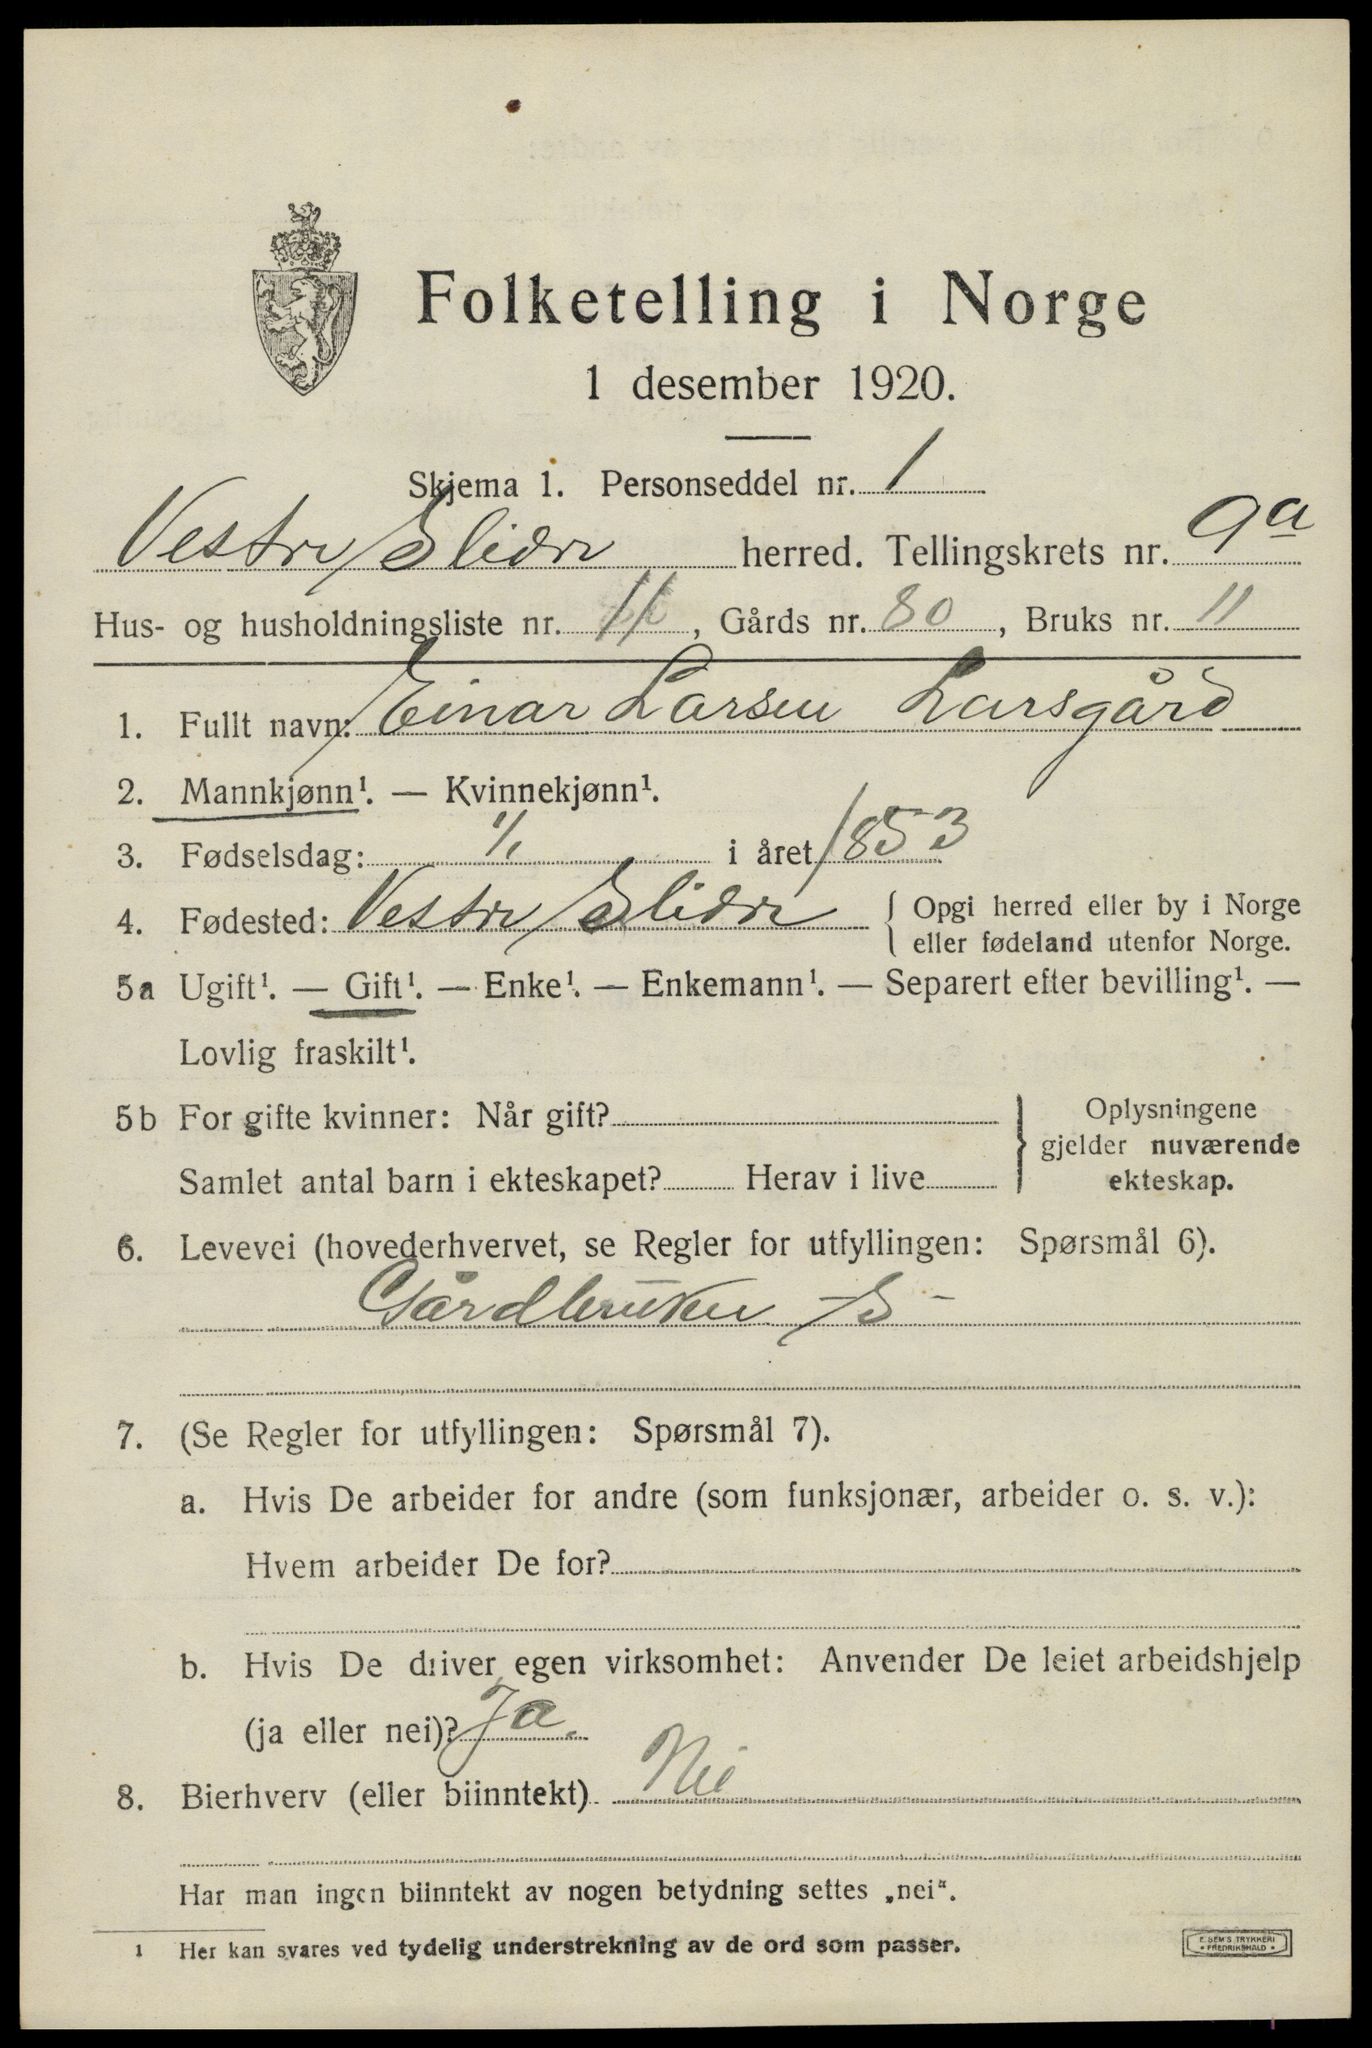 Folketelling i Norge
1 desember 1920.
Skjema 1. Personseddel nr. 1
Vestre Slidre herred. Tellingskrets nr. 9a
Hus- og husholdningsliste nr. 11, Gårds nr. 80, Bruks nr. 11
1. Fullt navn: Einar Larsen Larsgård
2. Mannkjønn¹. — Kvinnekjønn¹.
3. Fødselsdag: 1/1 i året 1853
4. Fødested: Vestre Slidre { Opgi herred eller by i Norge
eller fødeland utenfor Norge.
5a Ugift¹. — Gift¹. — Enke¹. — Enkemann¹. — Separert efter bevilling¹. —
Lovlig fraskilt¹.
5b For gifte kvinner: Når gift? } Oplysningene
gjelder nuværende
Samlet antal barn i ekteskapet? Herav i live ekteskap.
6. Levevei (hovederhvervet, se Regler for utfyllingen: Spørsmål 6).
Gårdbruker - S -
7. (Se Regler for utfyllingen: Spørsmål 7).
a. Hvis De arbeider for andre (som funksjonær, arbeider o. s. v.):
Hvem arbeider De for?
b. Hvis De driver egen virksomhet: Anvender De leiet arbeidshjelp
(ja eller nei)? Ja.
8. Bierhverv (eller biinntekt) Nei
Har man ingen biinntekt av nogen betydning settes „nei“.
1 Her kan svares ved tydelig understrekning av de ord som passer.
E. SEM'S TRYKKERI
• FREDRIKSHALD •